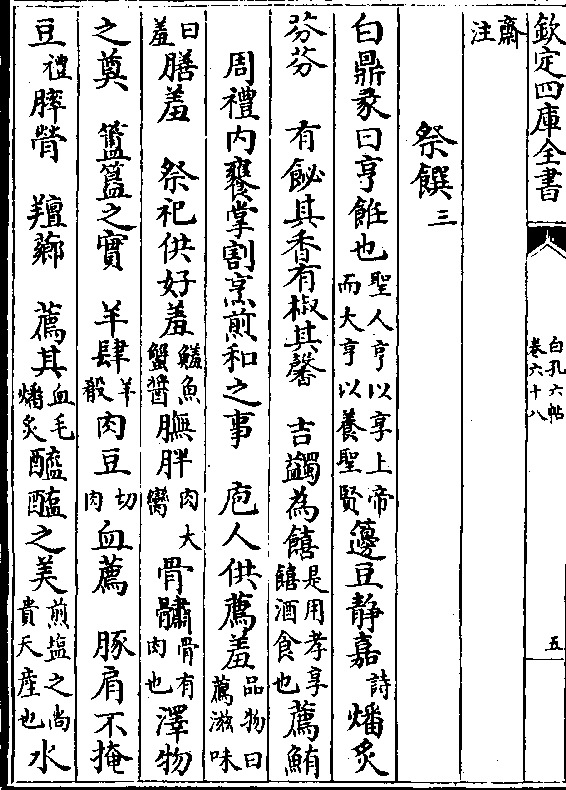 欽定四庫全書
白孔六帖
卷六十八
五
齋注
祭饌三
白鼎彖曰亨飪也聖人亨以享上帝而大亨以養聖賢籩豆静嘉詩燔炙
芬芬　有飶其香有椒其馨　吉蠲為饎是用孝享饎酒食也薦鮪
周禮内饔掌割烹煎和之事　庖人供薦羞品物曰薦滋味
曰羞膳羞　祭祀供好羞魚蟹醬膴胖肉大臠　骨鱐骨有肉也澤物
之奠　簠簋之實　羊肆羊殺肉豆切肉血薦　豚肩不掩
豆禮膟膋　羶薌　薦其血毛燔炙醯醢之美煎塩之尚貴天産也水